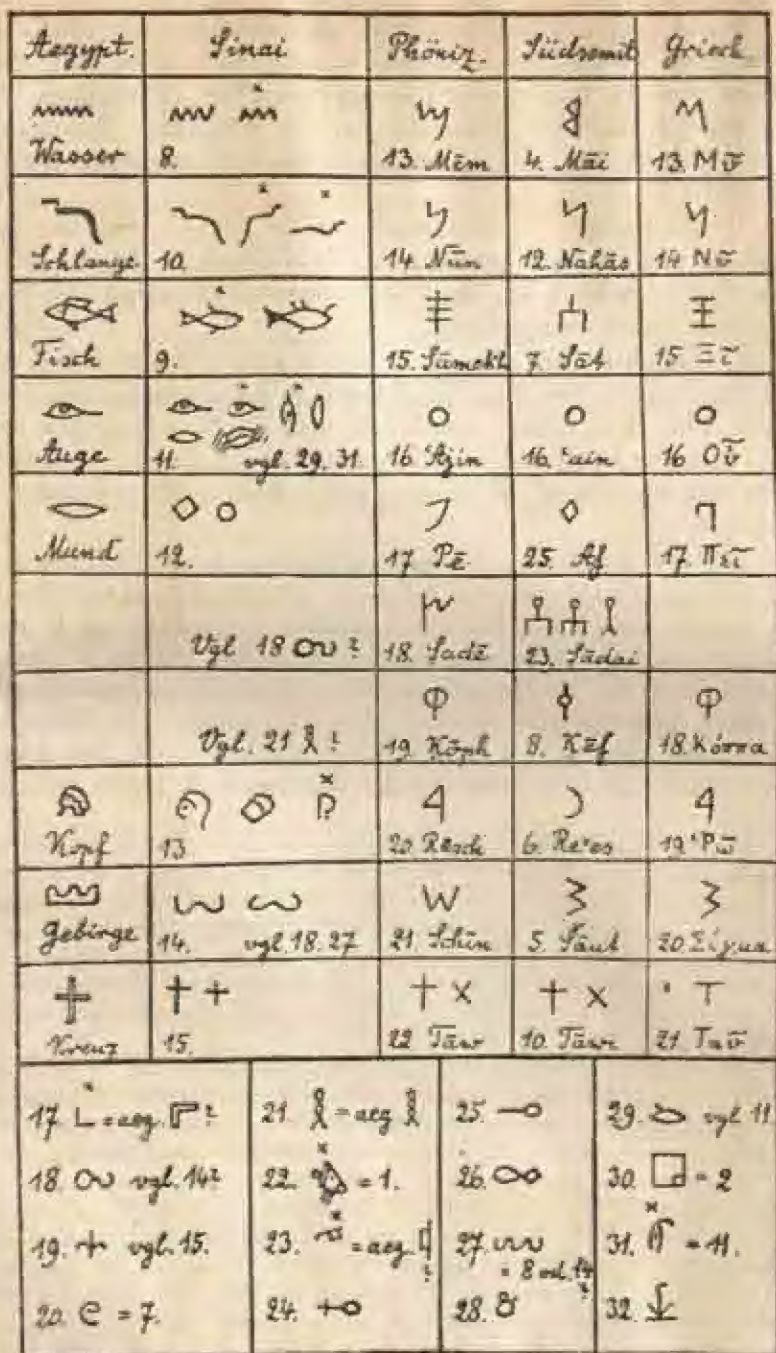 Aegypt. Sinai Phöniz. Südsemit. Griech.
Wasser 8. 13. Mēm 4. Māi 13. Μῦ
Schlange 10. 14. Nūn 12. Nahās 14. Νῦ
Fisch 9. 15. Sāmekh 7. Sāt 15. Ξῖ
Auge 11. vgl. 29. 31. 16. ʿAjin 16. ʿain 16. Οὖ
Mund 12. 17. Pē 25. Af 17. Πεῖ
Vgl. 18 ? 18. Sadē 23. Sādai
Vgl. 21 ! 19. Ḳōph 8. Ḳāf 18. Κόππα
Kopf 13. 20. Rēsch 6. Reʾes 19. Ῥῶ
Gebirge 14. vgl. 18. 27 21. Schīn 5. Sāut 20. Σίγμα
Kreuz 15. 22. Tāw 10. Tāwi 21. Ταῦ
17. = aeg. ? 21. = aeg. 25. 29. vgl. 11.
18. vgl. 14? 22. = 1. 26. 30. = 2
19. vgl. 15. 23. = aeg. ? 27. = 8 od. 14 ? 31. = 11.
20. = 7. 24. 28. 32.